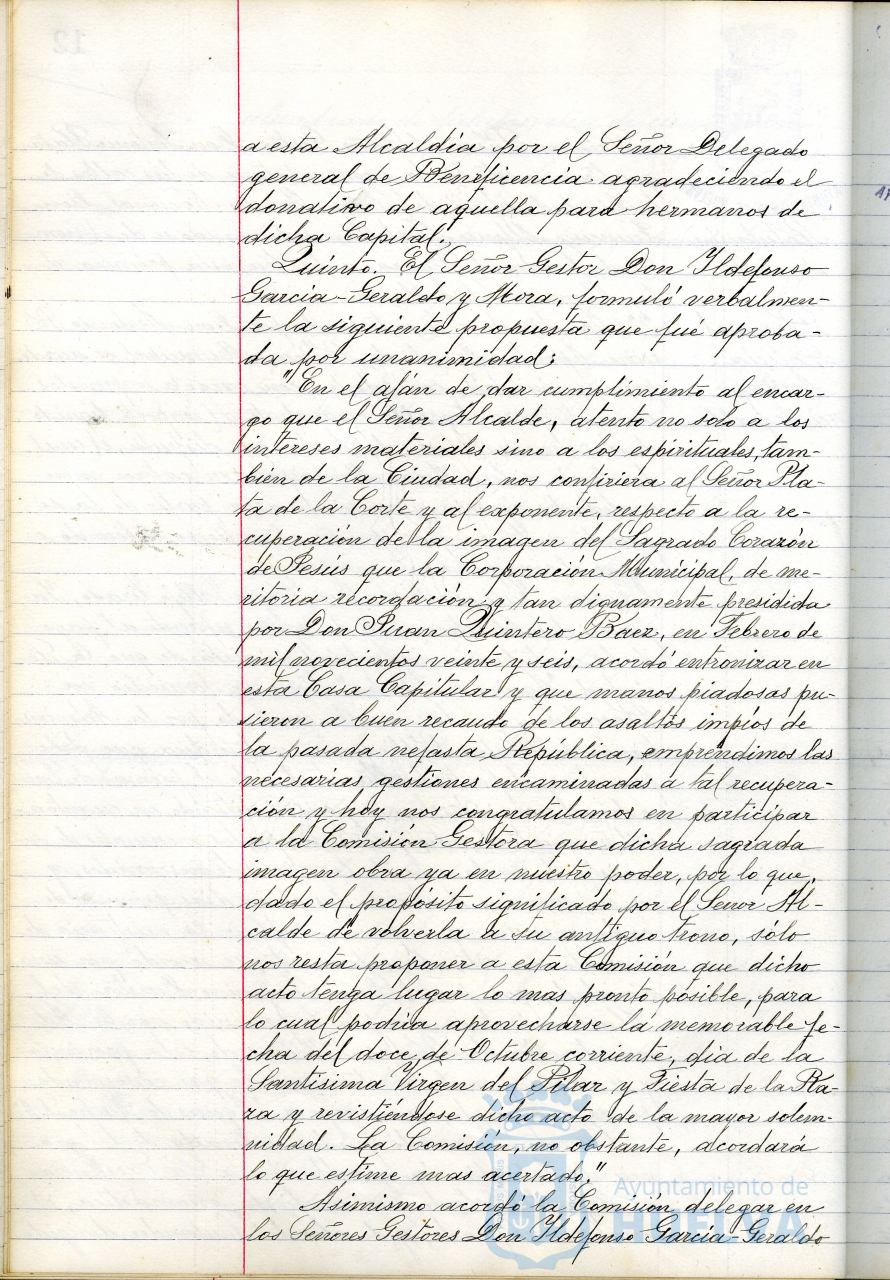 a esta Alcaldía por el Señor Delegado
general de Beneficencia agradeciendo el
donativo de aquella para hermanos de
dicha Capital.
Quinto. El Señor Gestor Don Ildefonso
García-Geraldo y Mora, formuló verbalmen-
te la siguiente propuesta que fué aproba-
da por unanimidad:
"En el afán de dar cumplimiento al encar-
go que el Señor Alcalde, atento no solo a los
intereses materiales sino a los espirituales, tam-
bién de la Ciudad, nos confiriera al Señor Pla-
ta de la Corte y al exponente, respecto a la re-
cuperación de la imagen del Sagrado Corazón
de Jesús que la Corporación Municipal, de me-
ritoria recordación y tan dignamente presidida
por Don Juan Quintero Baez, en Febrero de
mil novecientos veinte y seis, acordó entronizar en
esta Casa Capitular y que manos piadosas pu-
sieron a buen recaudo de los asaltos impíos de
la pasada nefasta República, emprendimos las
necesarias gestiones encaminadas a tal recupera-
ción y hoy nos congratulamos en participar
a la Comisión Gestora que dicha sagrada
imagen obra ya en nuestro poder, por lo que,
dado el propósito significado por el Señor Al-
calde de volverla a su antiguo trono, sólo
nos resta proponer a esta Comisión que dicho
acto tenga lugar lo mas pronto posible, para
lo cual podría aprovecharse la memorable fe-
cha del doce de Octubre corriente, día de la
Santísima Virgen del Pilar y Fiesta de la Ra-
za y revistiéndose dicho acto de la mayor solem-
nidad. La Comisión, no obstante, acordará
lo que estime mas acertado."
Asimismo acordó la Comisión delegar en
los Señores Gestores Don Ildefonso García-Geraldo
Ayuntamiento de
HUELVA